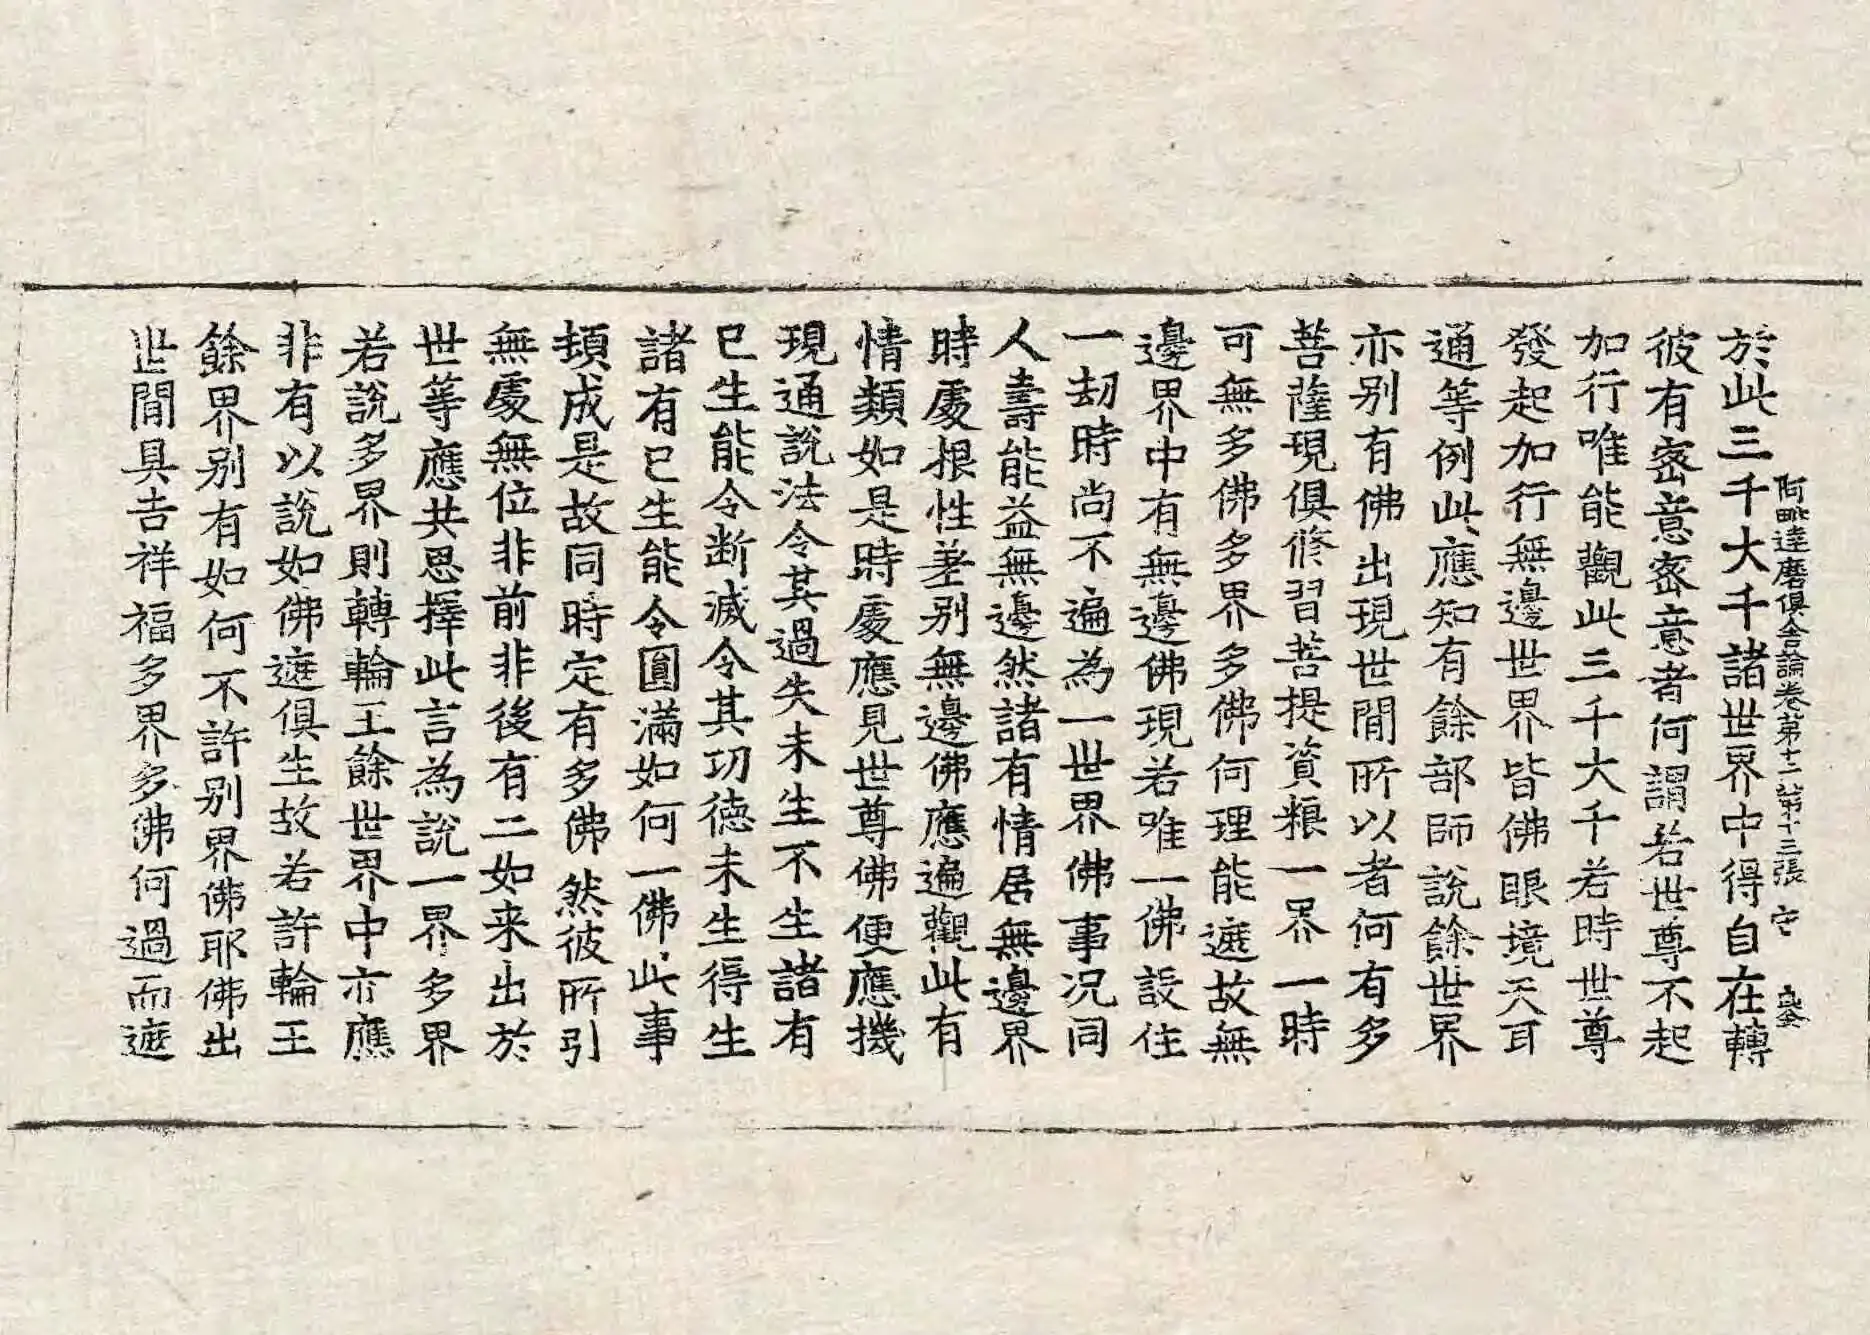 阿毗達磨俱舍論卷第十二 第十三張 守
於此三千大千諸世界中得自在轉
彼有密意密意者何謂若世尊不起
加行唯能觀此三千大千若時世尊
發起加行無邊世界皆佛眼境天耳
通等例此應知有餘部師說餘世界
亦別有佛出現世間所以者何有多
菩薩現俱修習菩提資粮一界一時
可無多佛多界多佛何理能遮故無
邊界中有無邊佛現若唯一佛設住
一劫時尚不遍為一世界佛事況同
人壽能益無邊然諸有情居無邊界
時處根性差別無邊佛應遍觀此有
情類如是時處應見世尊佛便應機
現通說法令其過失未生不生諸有
已生能令断滅令其功德未生得生
諸有已生能令圓滿如何一佛此事
頓成是故同時定有多佛然彼所引
無處無位非前非後有二如来出於
世等應共思擇此言為說一界多界
若說多界則轉輪王餘世界中亦應
非有以說如佛遮俱生故若許輪王
餘界別有如何不許別界佛耶佛出
世間具吉祥福多界多佛何過而遮